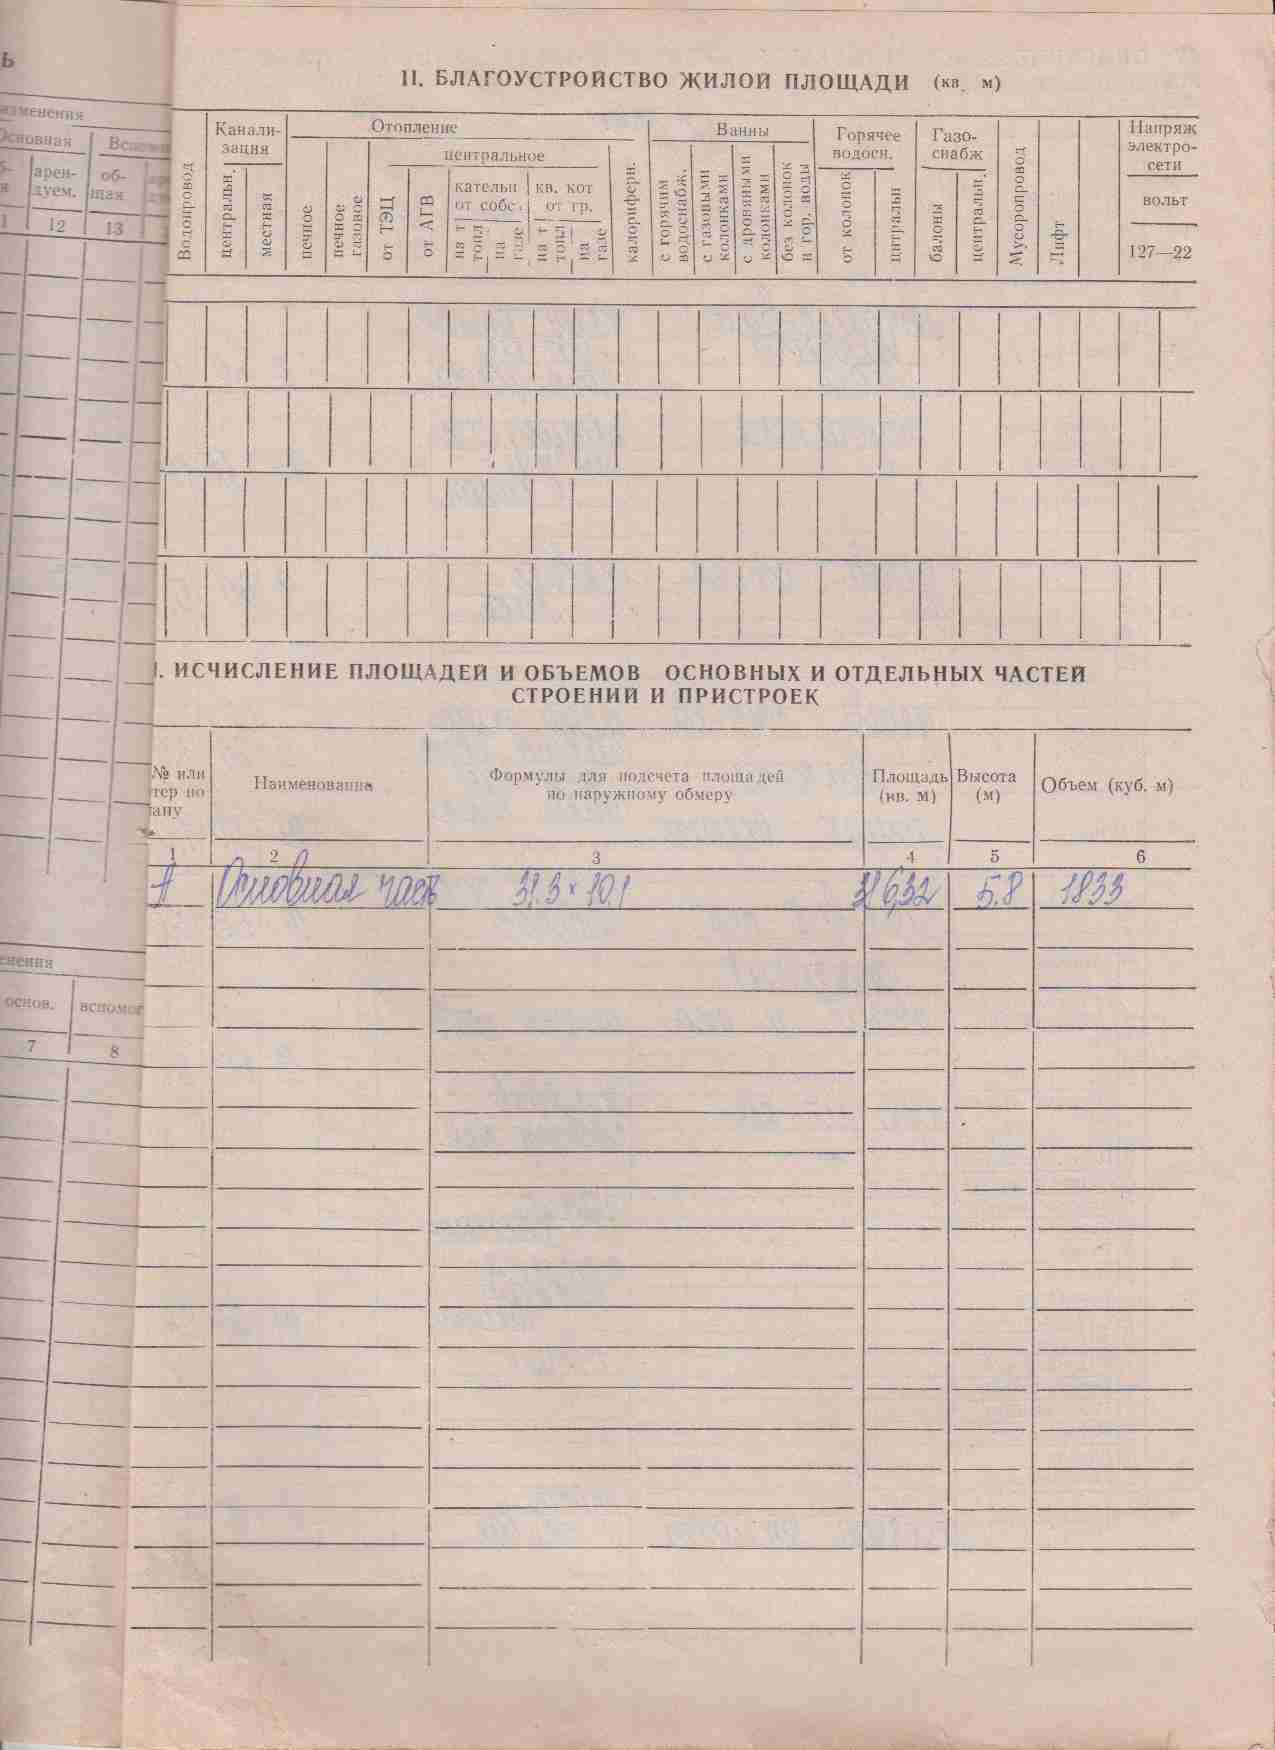 Ь
изменения
Основная
арен-
дуем.
об-
щая
12 13
II. БЛАГОУСТРОЙСТВО ЖИЛОЙ ПЛОЩАДИ (кв. м)
Водопровод
Канали-
зация
центральн.
местная
Отопление
печное
печное
газовое
центральное
от ТЭЦ
от АГВ
кв. кот
от гр.
калориферн.
Ванны
с горячим
водоснабж.
с газовыми
колонками
с дровяными
колонками
без колонок
и гор. воды
Горячее
водосн.
от колонок
Газо-
снабж
балоны
центральн.
Мусоропровод
Лифт
Напряж
электро-
сети
вольт
127—22
I. ИСЧИСЛЕНИЕ ПЛОЩАДЕЙ И ОБЪЕМОВ ОСНОВНЫХ И ОТДЕЛЬНЫХ ЧАСТЕЙ
СТРОЕНИЙ И ПРИСТРОЕК
№ или
тер по
Наименование
Формулы для подсчета площадей
по наружному обмеру
Площадь
(кв. м)
Высота
(м)
Объем (куб. м)
1 2 3 4 5 6
А Основная часть 31.3 × 10.1 316,32 5.8 1833
енения
основ. вспомог
7 8